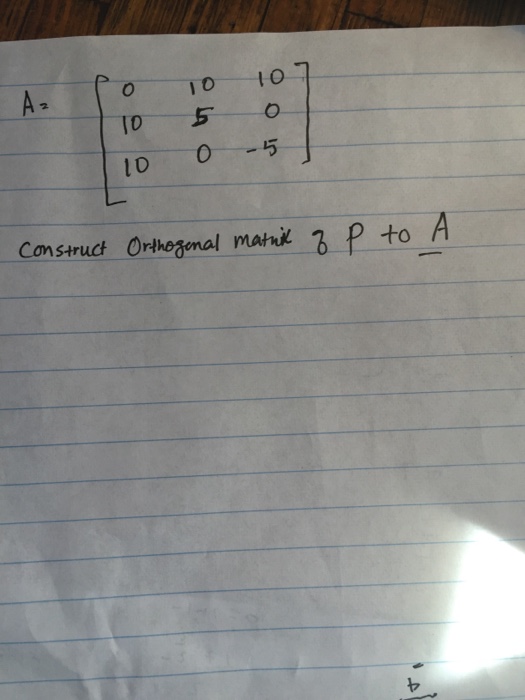 A= [ 0 10 10
10 5 0
10 0 -5 ]
Construct Orthogonal matrix P to A